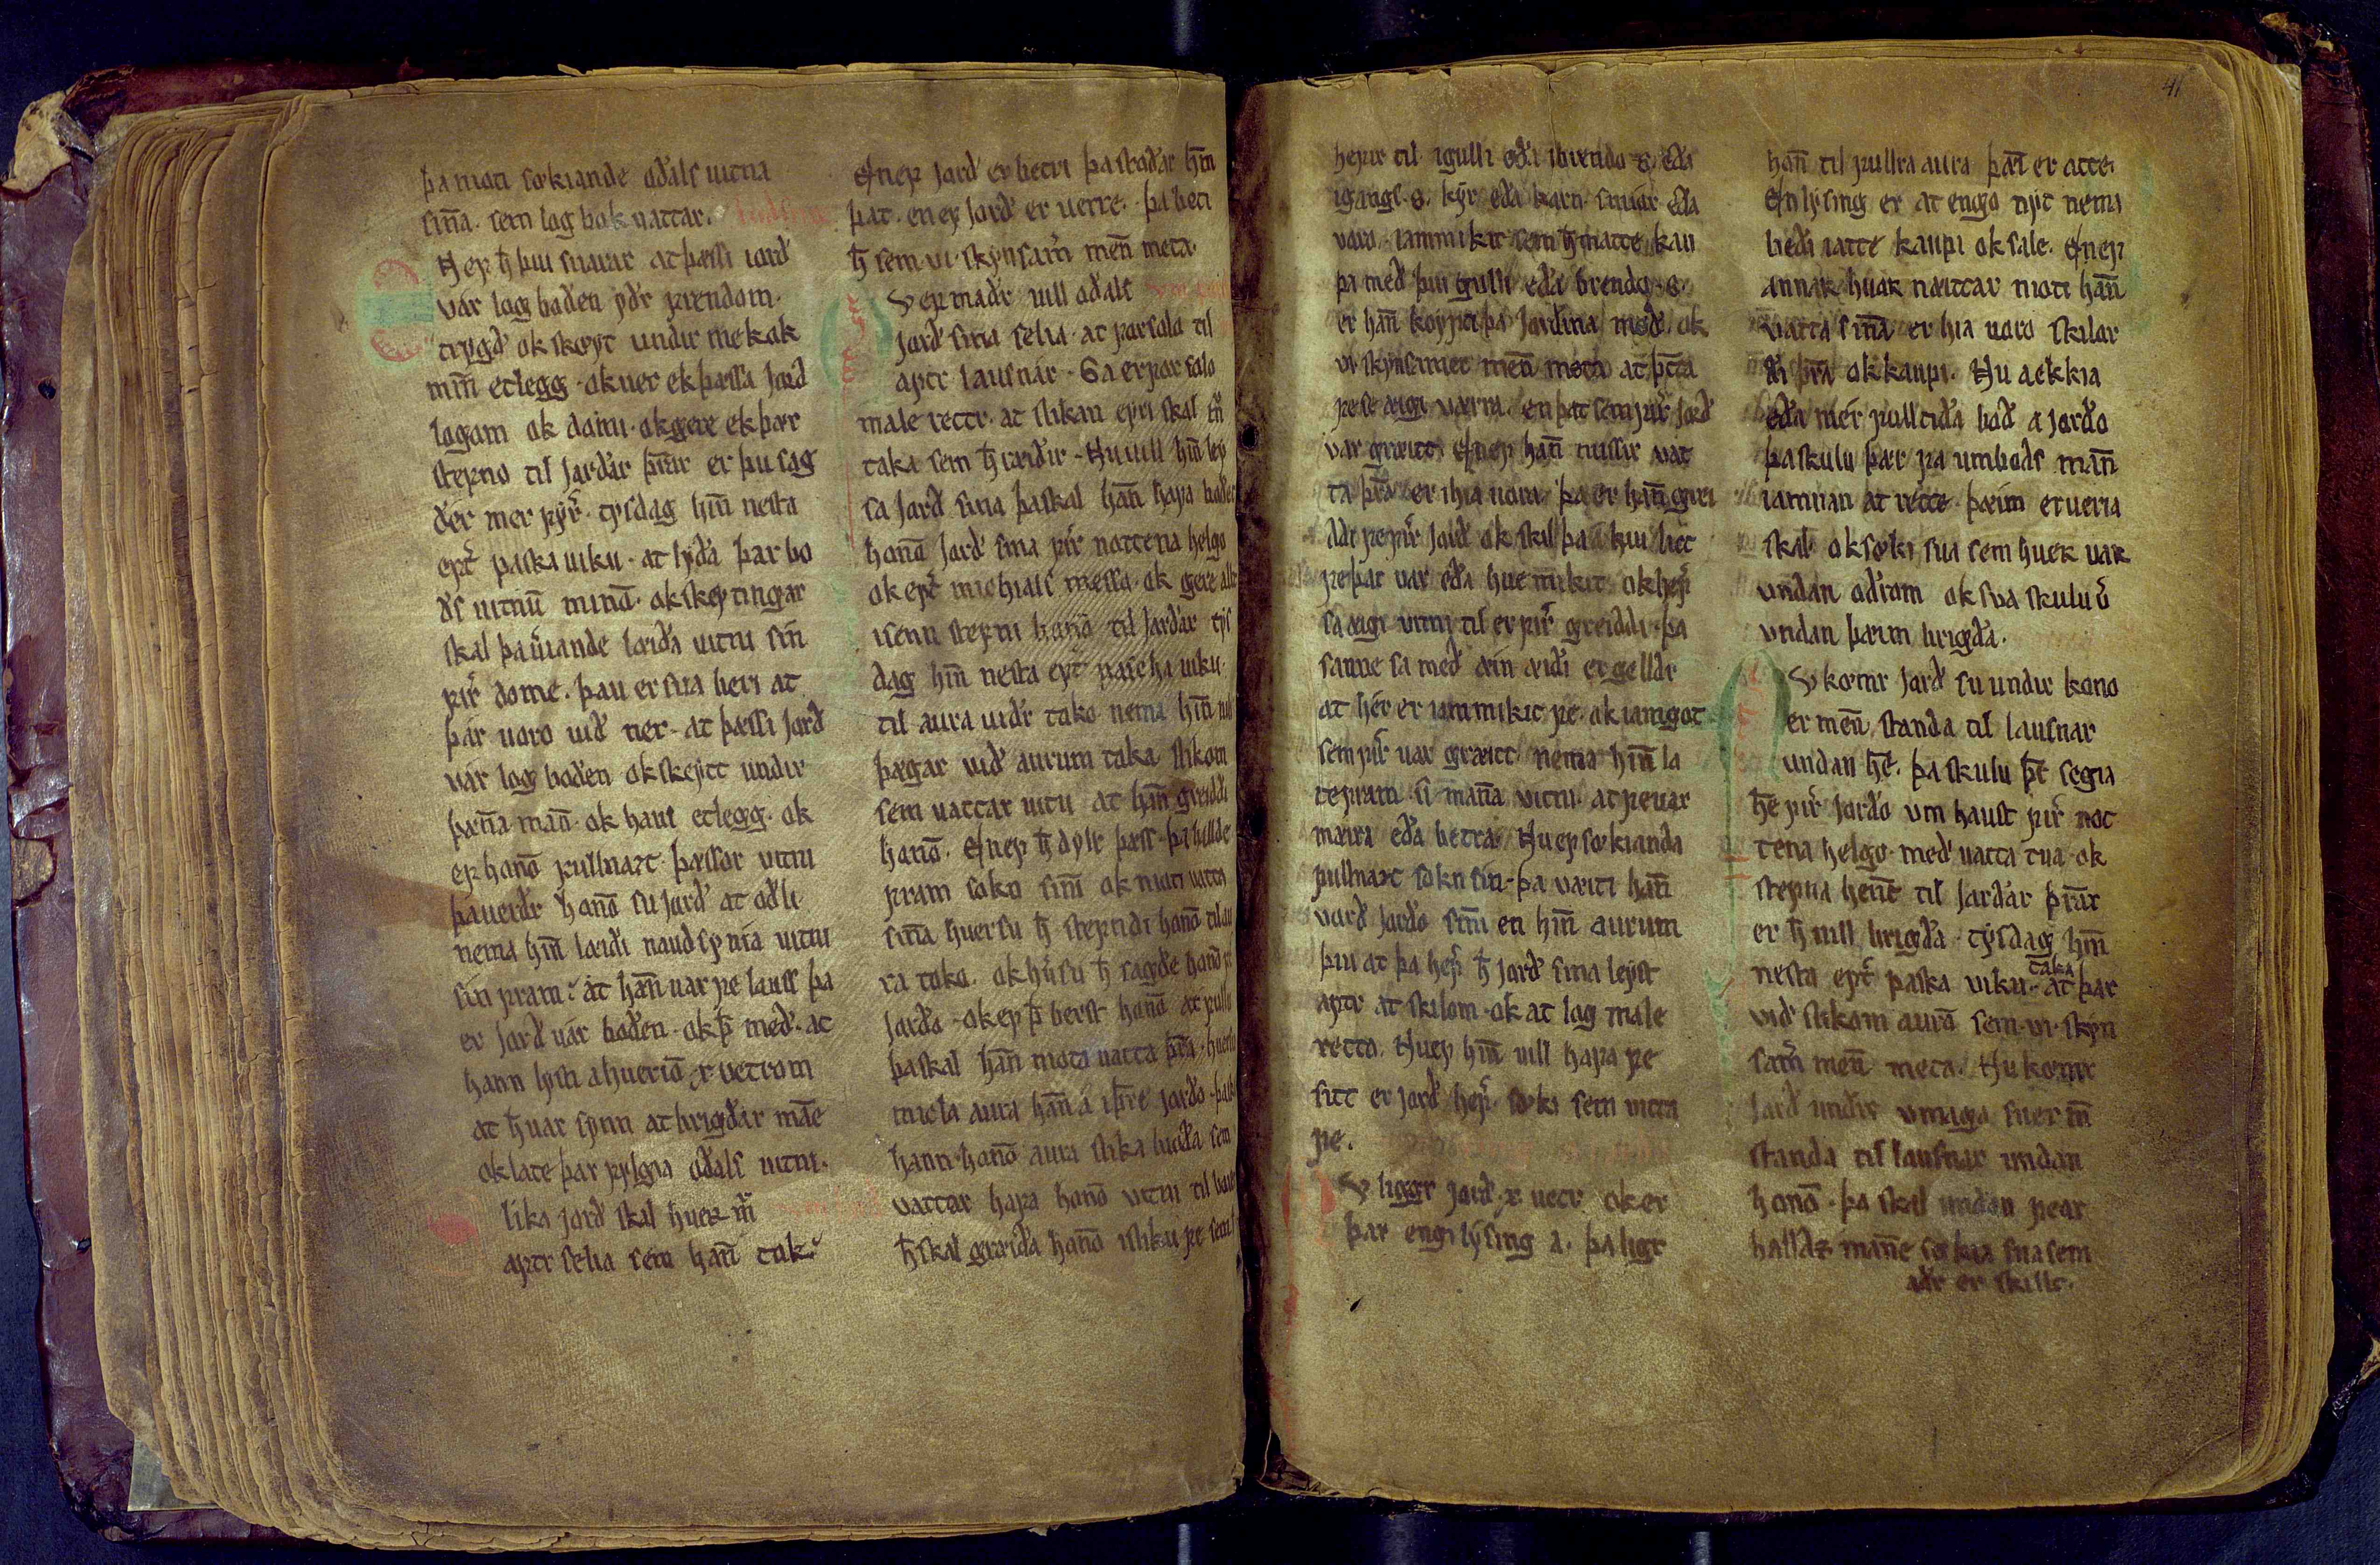 þa niote sœkiande oðals uitna
sin̅a. sem logbok uattar.
Hef h̅ þui suarar at þæssi iorð
var log boðen yðr frendom.
trygð ok skœyt undir mek ok
min̅ etlegg. ok uer ek þæssa Jorð
logom ok domi. ok gere ek þær
stefno til Jarðar þr̅ar er þu sag
ðer mer fyr̅. tysdag hin̅ nesta
ept̅ paska uiku. at lyða þar bo
ðs uitnu̅ mino̅. ok skøytingar
skal þa uerande lœiða uitni sin
fir̅ dome. þau er sua beri at
þar uoro uið ner. at þæssi Jorð
uar log boðen ok skeytt undir
þæn̅a man̅. ok hans etlegg. ok
ef hano̅ fullnazt þæssor uitni
þa uerðr hano̅ su Jorð at oðli
nema hin̅ lœiði nauðsynia uitni
sin fram. at han̅ uar fe lauss þa
er Jorð uar boðen. ok þ̅ með. at
hann lysti a huerio̅ .x. vetrom
at h̅ uar synn at brigðar man̅e
ok late þar fylgia oðals uitni.
lika jorð skal huer m̅
aptr selia sem han̅ tok.
En ef Jorð er betri þa skoðar hin̅
þat. en ef Jorð er uerre. þa beti
h̅ sem .vi. skynsam̅ men̅ meta.
V ef maðr uill oðals
Jorð sina selia. at forsolo til
aptr lausnar. Sa er forsolo
male rettr. at slikan eyri skal m̅
taka sem h̅ræiðir. Nu uill hin̅ løy
sa Jorð sina þa skal han̅ hafa boðet
hano̅ Jorð sina fir̅ nottena helgo
ok ept̅ michials messo. ok gere allt
isenn stefni hano̅ til Jarðar tys
dag hin̅ nesta ept̅ pascha uiku.
til aura uiðr toko. nema hin̅ uili
þægar uið aurum taka slikom
sem uattar uitu at han̅ greiddi
hano̅. En ef h̅ dylr þess. þa hallde
fram sokn sin̅i ok nioti uatta
sin̅a huersu h̅ stefndi hano̅ til au
ra toko. ok hu̅su h̅ sagde hano̅ fir̅
Jorðo. ok ef þ̅ berst hano̅ at fullu
þa skal han̅ niota uatta þr̅a. huersu
micla aura han̅ a iþr̅e jorðo. þa skal
hann hano̅ aura slika bioða sem
vattar hafa hano̅ vitni til borit
h̅ skal græiða hano̅ isliku fe sem h̅
hefir til. igulli eða ibrendo .s. eða
igangs .s. kyr eða korn. smior eða
voro. iammikit sem h̅ matte kau
pa með þui gulli eða brendo .s.
er han̅ køypti þa Jorðina með. ok
.vi. skynsamer men̅ meta at þ̅tta
fe se æigi værra. en þat sem fir̅ Jorð
var græitt. En ef han̅ missir vat
ta þr̅a er ihia uoro. þa er han̅ grei
ddi fe fir̅ Jorð ok skil þa a hui litt
fe þat uar eða hue mikit. ok hef̅
sa æigi vitni til er fir̅ greiddi. þa
sanne sa með æin æiði er gelldr
at her er iammikit fe. ok iamgot
sem fir̅ uar græitt. nema hin̅ la
te fram .ii. man̅a vitni. at fe uar
mæira eða betra. Nu ef sœkianda
fullnazt sokn sin. þa væiti han̅
varð Jorðo sin̅i en hin̅ aurum
þui at þa hef̅ h̅ Jorð sina løyst
aptr at skilom. ok at log male
retto. Nu ef hin̅ uill hafa fe
sitt er Jorð hef̅. sœki sem vitta
fe.
V liggr jorð .x. uetr. ok er
þar engi lysing a. þa ligr
han̅ til fullra aura þan̅ er atte.
En lysing er at engo nyt nema
beði iatte kaupi ok sale. En ef
annar huar næittar nioti han̅
vatta sin̅a er hia uoro skilor
ði þr̅a ok kaupi. Nu a ekkia
eða mer fulltiða boð a jorðo
þa skulu þær fa umboðs man̅
iamnan at rette. þæim er ueria
skal. ok sœki sua sem huer uar
undan oðrom ok sua skulu u̅
vndan þæim brigða.
V kœmr Jorð su undir kono
er men̅ standa til lausnar
undan hen̅e. þa skulu þr̅ segia
hen̅e fir̅ jorðo vm haust fir̅ not
tena helgo. með uatta tua. ok
stefna hen̅e til Jarðar þr̅ar
er h̅ uill brigða. tysdag hin̅
nesta ept̅ paska viku. at taka þar
við slikom auro̅ sem .vi. skyn
sam̅ men̅ meta. Nu kœmr
Jorð undir vmaga su er m̅
standa til lausnar undan
hano̅. þa skal undan fear
halldz man̅e sœkia sua sem
aðr er skillt.
41